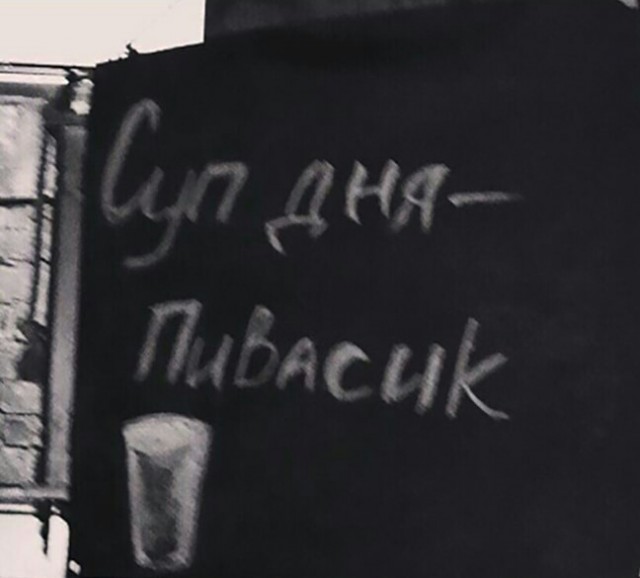 Суп дня-
Пивасик